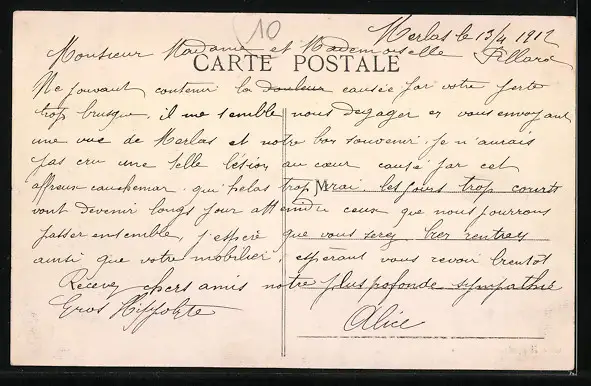 10
Merlas le 13/4 1912
Monsieur Madame et Mademoiselle Fillard
CARTE POSTALE
Ne pouvant contenir la douleur causée par votre perte
trop brusque, il me semble nous degager en vous envoyant
une vue de Merlas et notre bon souvenir. je n'aurais
pas cru une telle lésion au cœur causé par cet
affreux cauchemar, qui helas trop vrai. les jours trop courts
vont devenir longs pour attendre ceux que nous pourrons
passer ensemble, j'espère que vous serez bien rentrés
ainsi que votre mobilier, espérant vous revoir bientôt
Recevez chers amis notre plus profonde sympathie
Gros Hippolyte
Alice